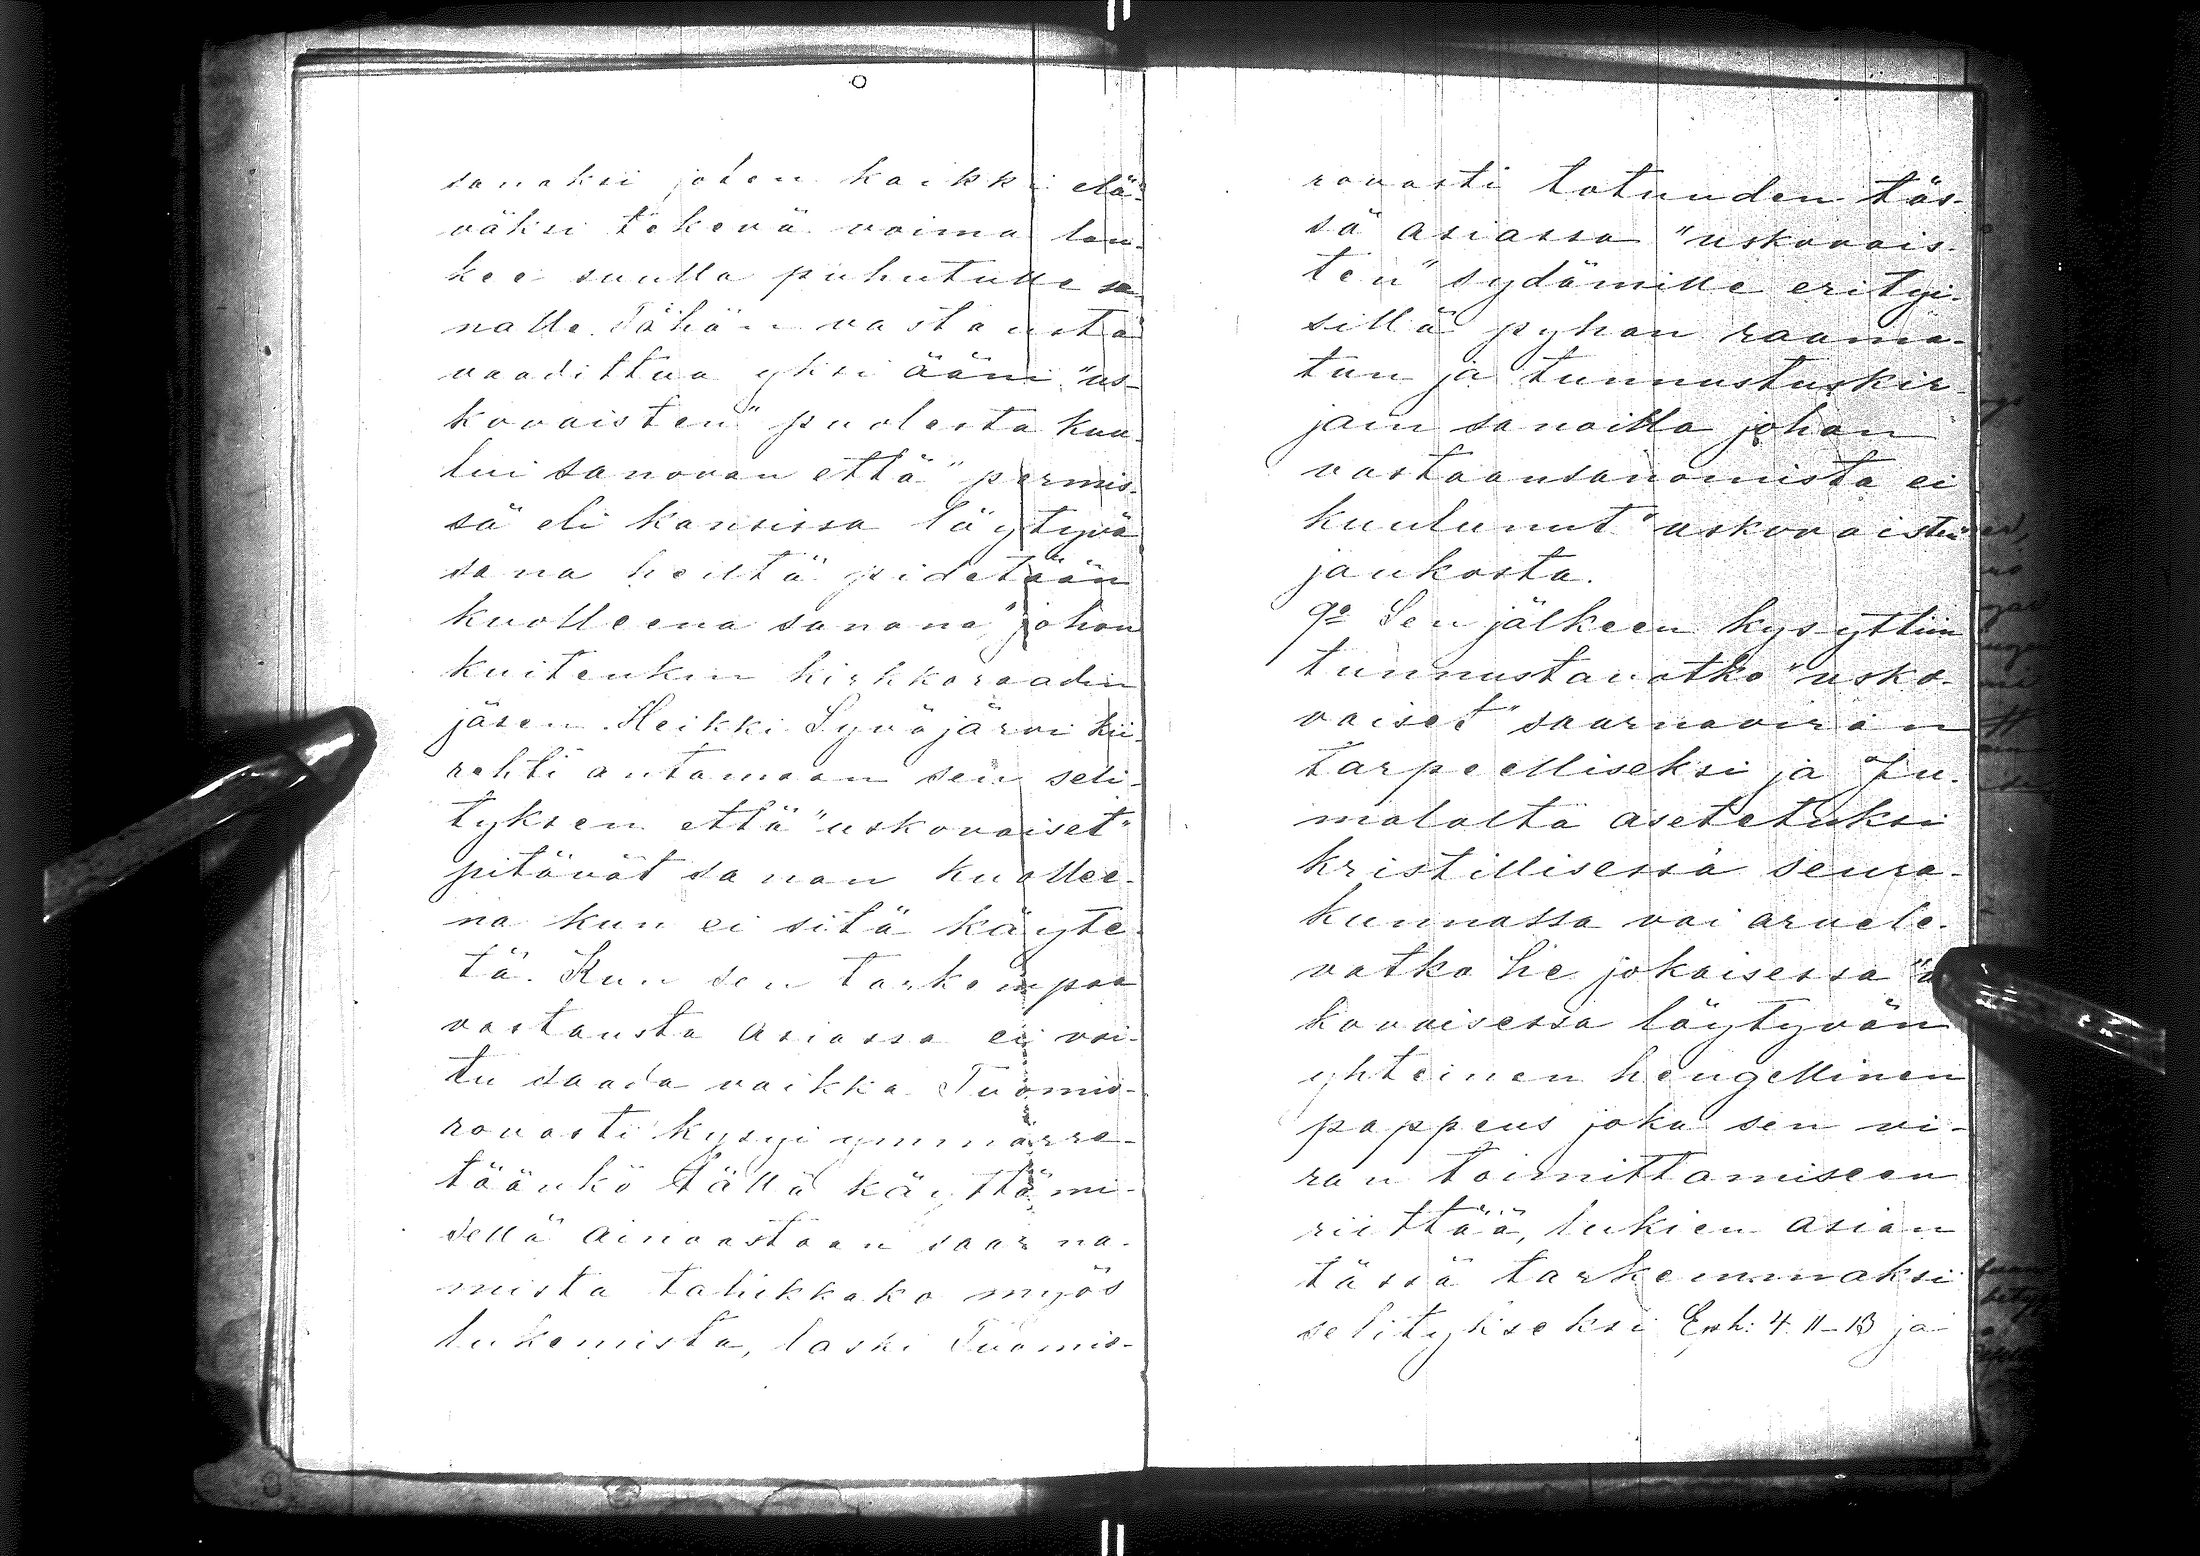 sanaksi joten kaikki elä-
väksi tekevä voima lan-
kee suulla puhutulle sa
nalle. Tähän vastausta
vaadittua yksi ääni "us-
kovaisten" puolesta kuu-
lui sanovan että "permis-
sä eli kansissa löytyvä
sana heiltä pidetään
kuolleena sanana" johon
kuitenkin kirkkoraadin
jäsen Heikki Syväjärvi kii-
rehti antamaan sen seli-
tyksen että "uskovaiset"
pitävät sanan kuollee-
na kun ei sitä käyte-
tä. Kun sen tarkempaa
vastausta asiassa ei voi-
tu saada vaikka Tuomio-
rovasti kysyi ymmärre-
täänkö tällä käyttämi-
sellä ainoastaan saarna-
mista tahikkako myös
lukemista, laski Tuomio-
rovasti totuuden täs-
sä asiassa "uskovais-
ten" sydämille erityi-
sillä pyhän raama-
tun ja tunnustuskir-
jain sanoilla johon
vastaansanomista ei
kuulunut "uskovaisten"
joukosta.
9o Sen jälkeen kysyttiin
tunnustavatko "usko-
vaiset" saarnaviran
tarpeelliseksi ja Ju-
malalta asetetuksi
kristillisessä seura-
kunnassa vai arvele-
vatko he jokaisessa
kovaisessa löytyvän
yhteinen hengellinen
pappeus joka sen vi-
ran toimittamiseen
riittää, lukien asian
tässä tarkemmaksi
selitykseksi Eph: 4. 11-13 ja